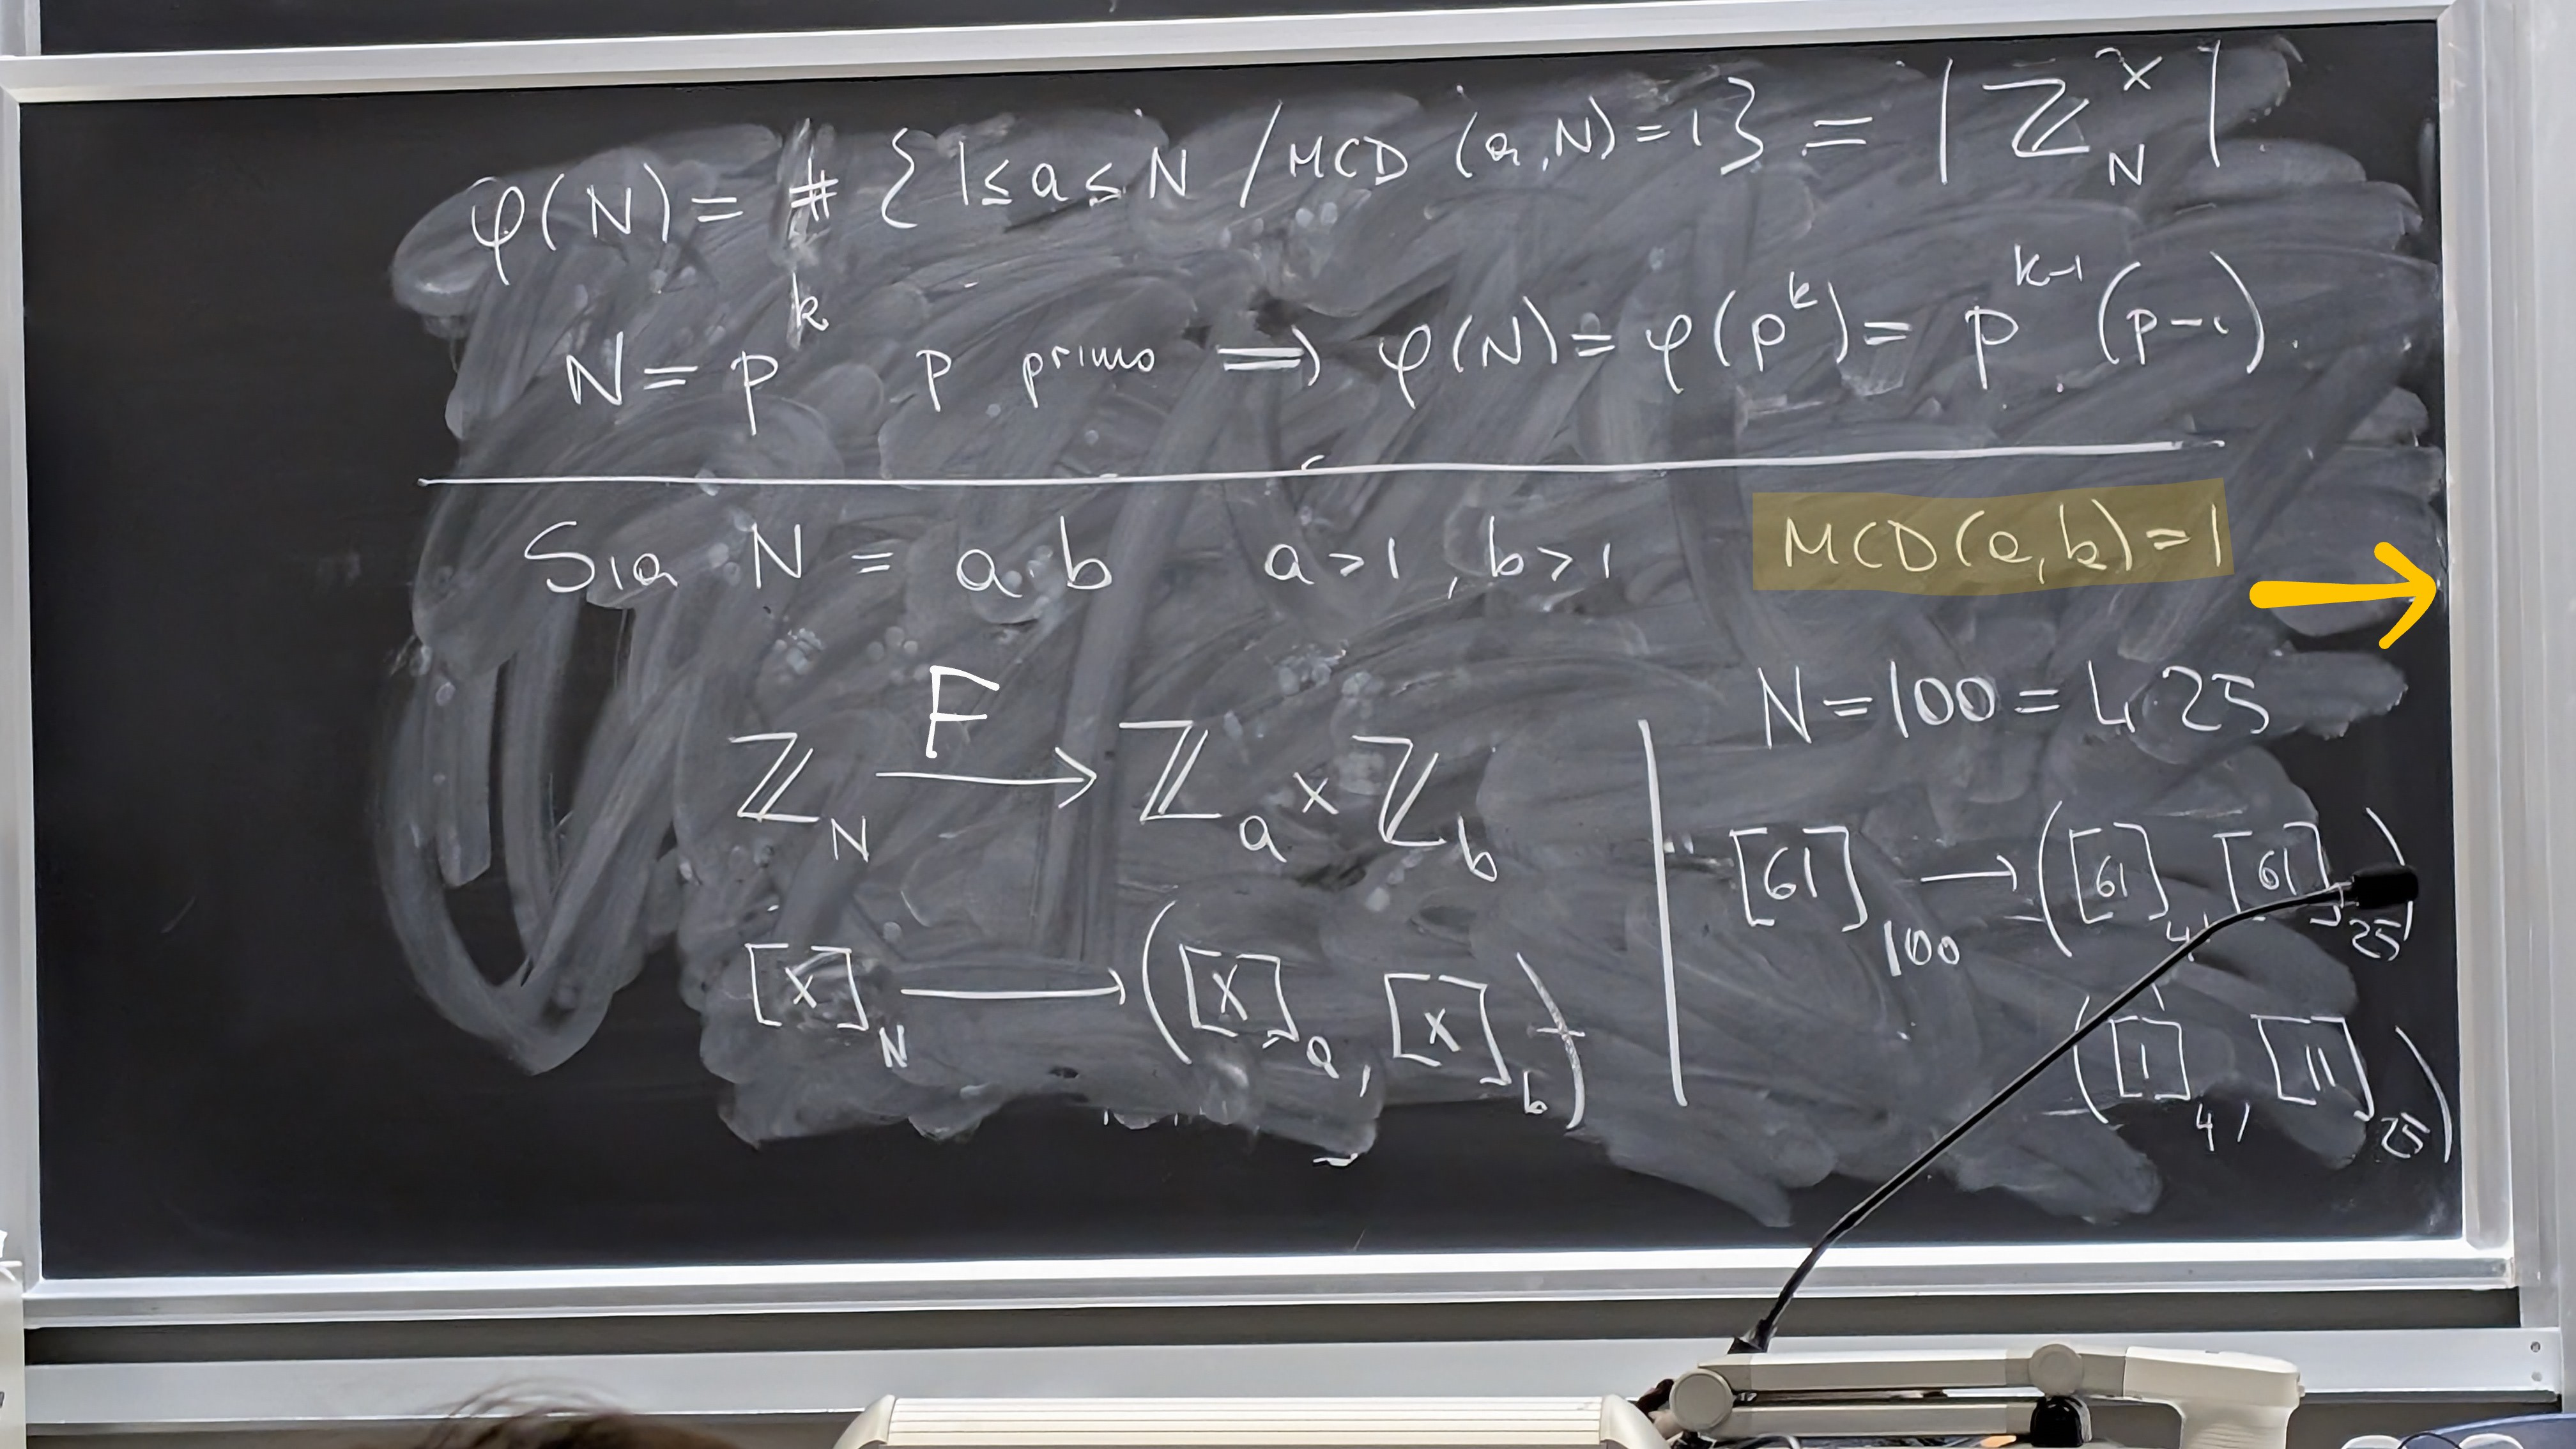 φ(N) = # { 1 ≤ a ≤ N / MCD (a,N) = 1 } = | ℤ_N^× |.
N = p^k p primo ⟹ φ(N) = φ(p^k) = p^{k-1} (p-1).
Sia N = a·b a>1, b>1 MCD(a,b)=1
ℤ_N —F→ ℤ_a × ℤ_b
[x]_N ⟶ ([x]_a, [x]_b)
N = 100 = 4·25
[61]_100 → ([61]_4, [61]_25)
([1]_4, [11]_25)